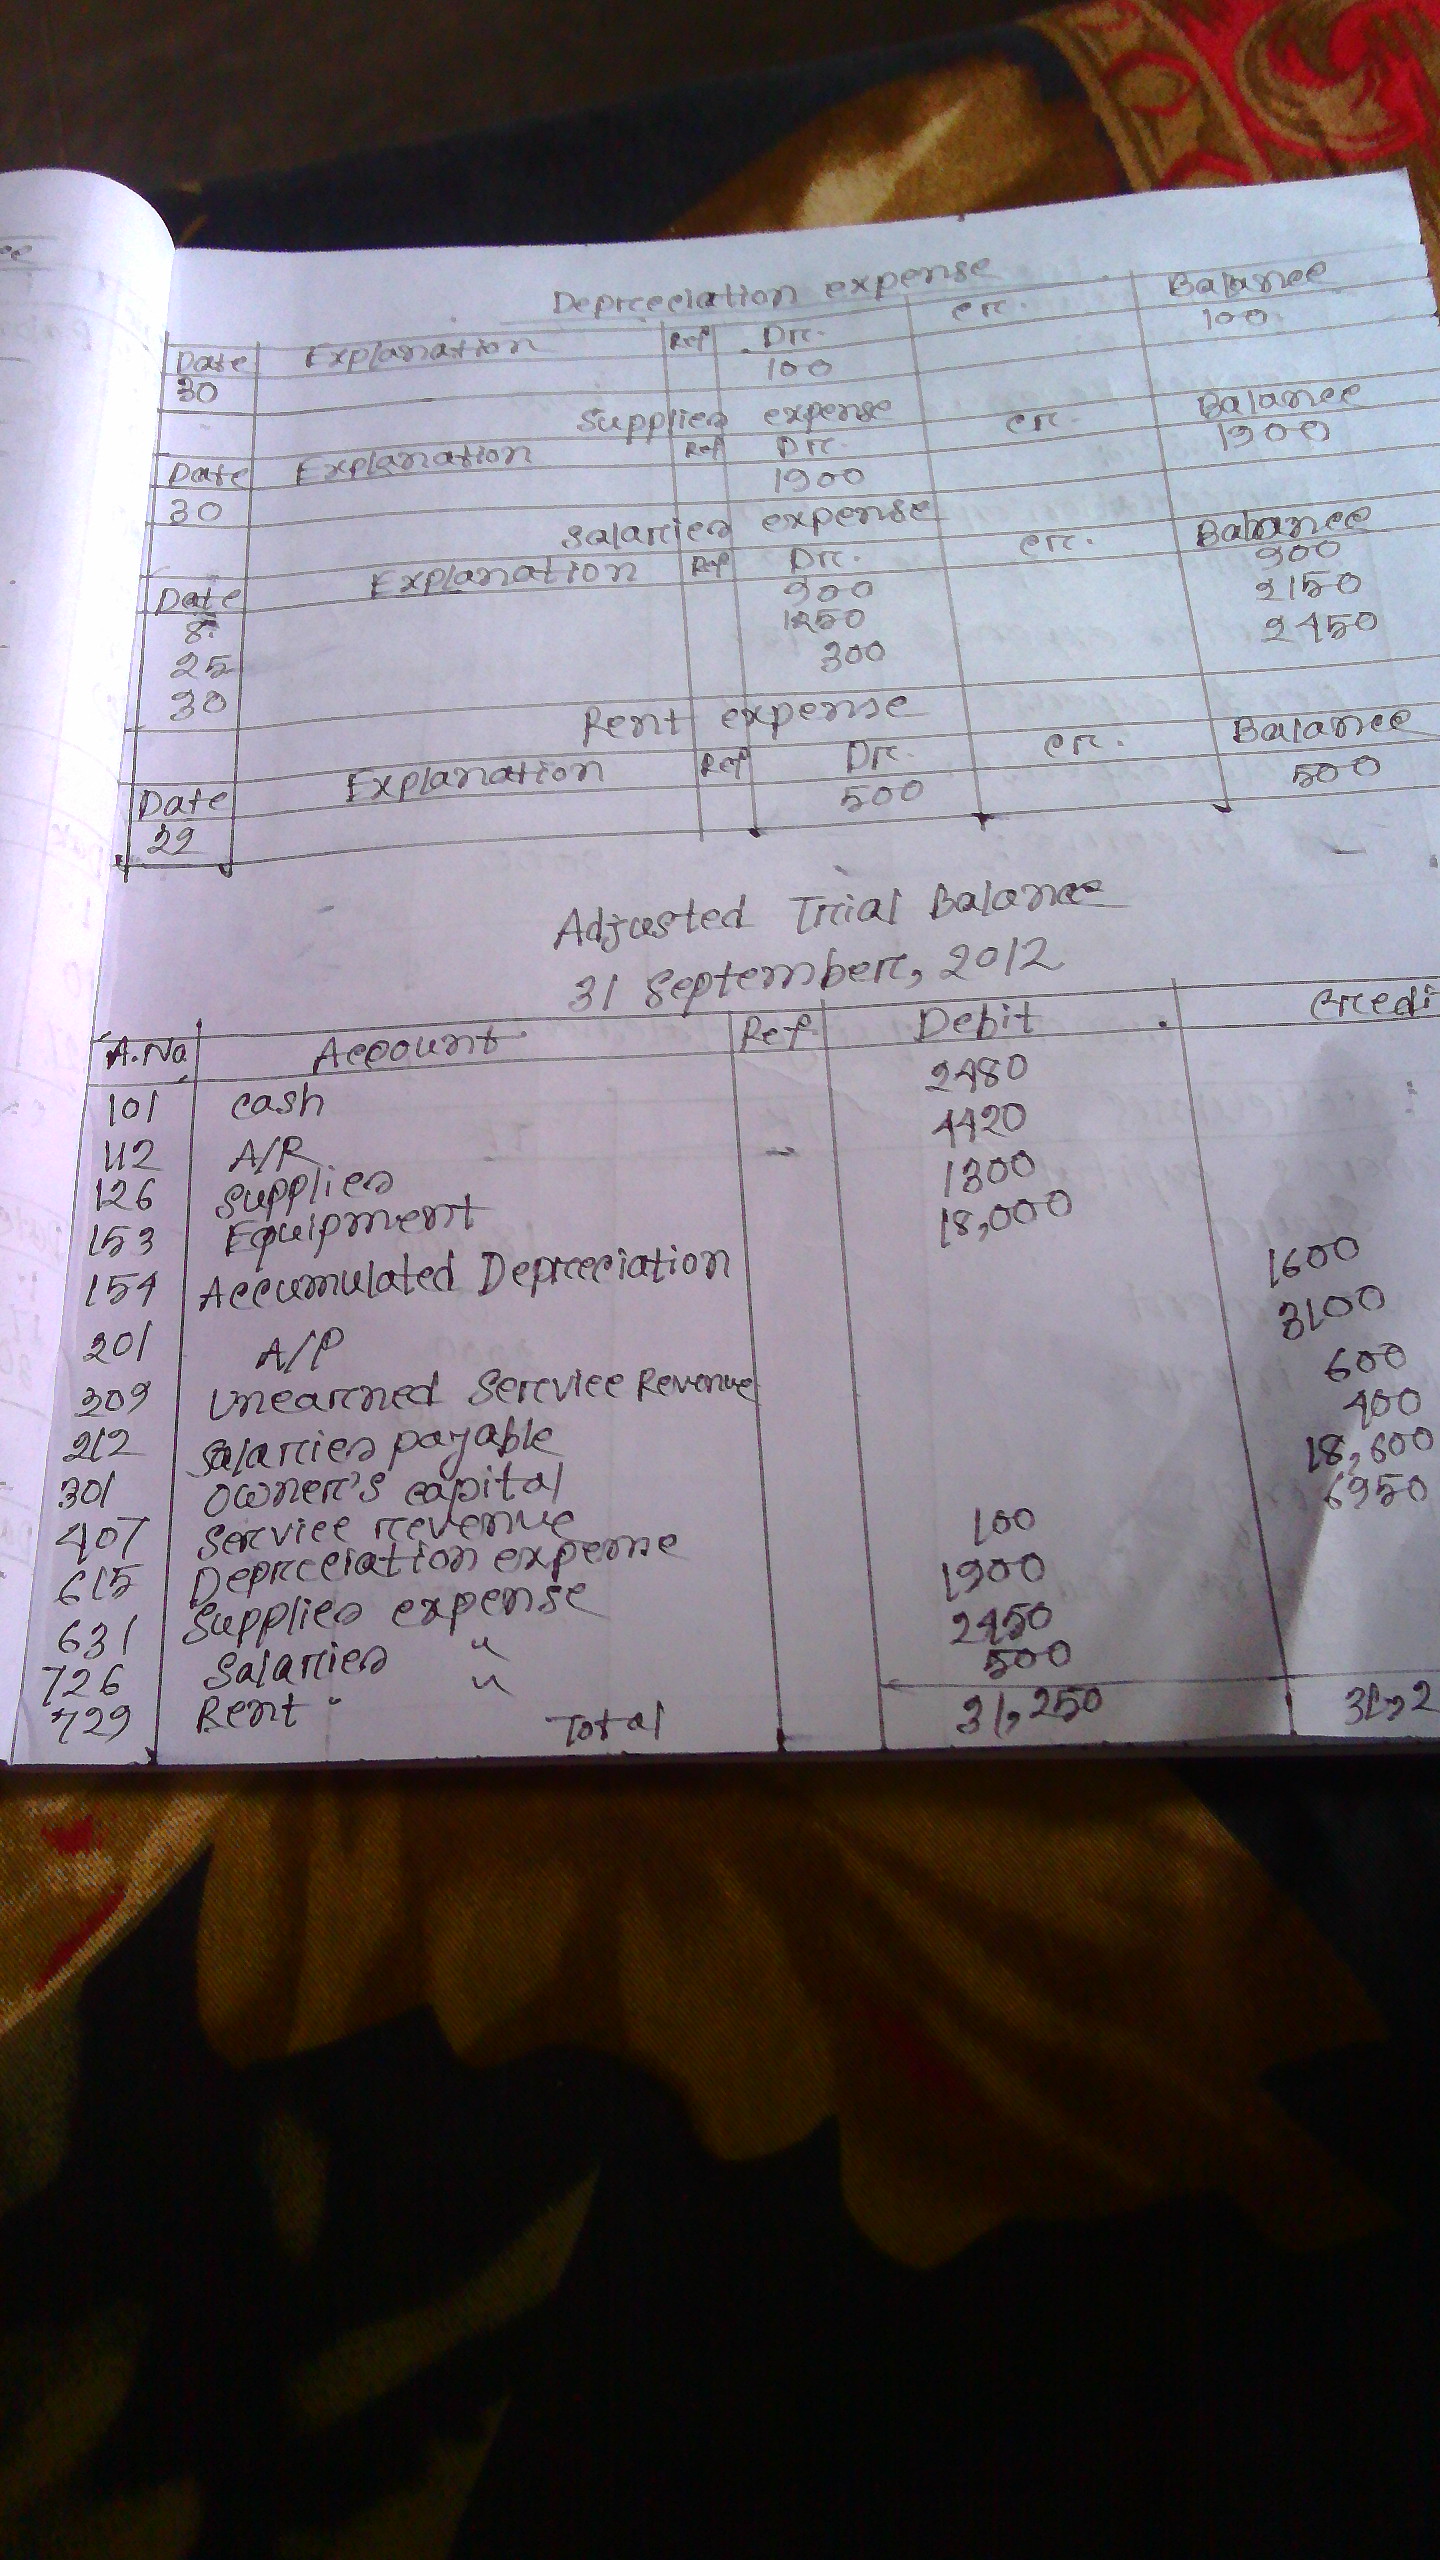 Depreciation expense
Date Explanation Ref Dr. Cr. Balance
30 100 100
Supplies expense
Date Explanation Ref Dr. Cr. Balance
30 1900 1900
Salaries expense
Date Explanation Ref Dr. Cr. Balance
8 900 900
25 1250 2150
30 300 2450
Rent expense
Date Explanation Ref Dr. Cr. Balance
29 500 500
Adjusted Trial Balance
31 September, 2012
A.No Account Ref Debit Credi
101 Cash 2480
112 A/R 4420
126 Supplies 1300
153 Equipment 18,000
154 Accumulated Depreciation 1600
201 A/P 3100
209 Unearned Service Revenue 600
212 Salaries payable 400
301 Owner's capital 18,600
407 Service revenue 6950
615 Depreciation expense 100
631 Supplies expense 1900
726 Salaries " 2450
729 Rent " 500
Total 31,250 31,2